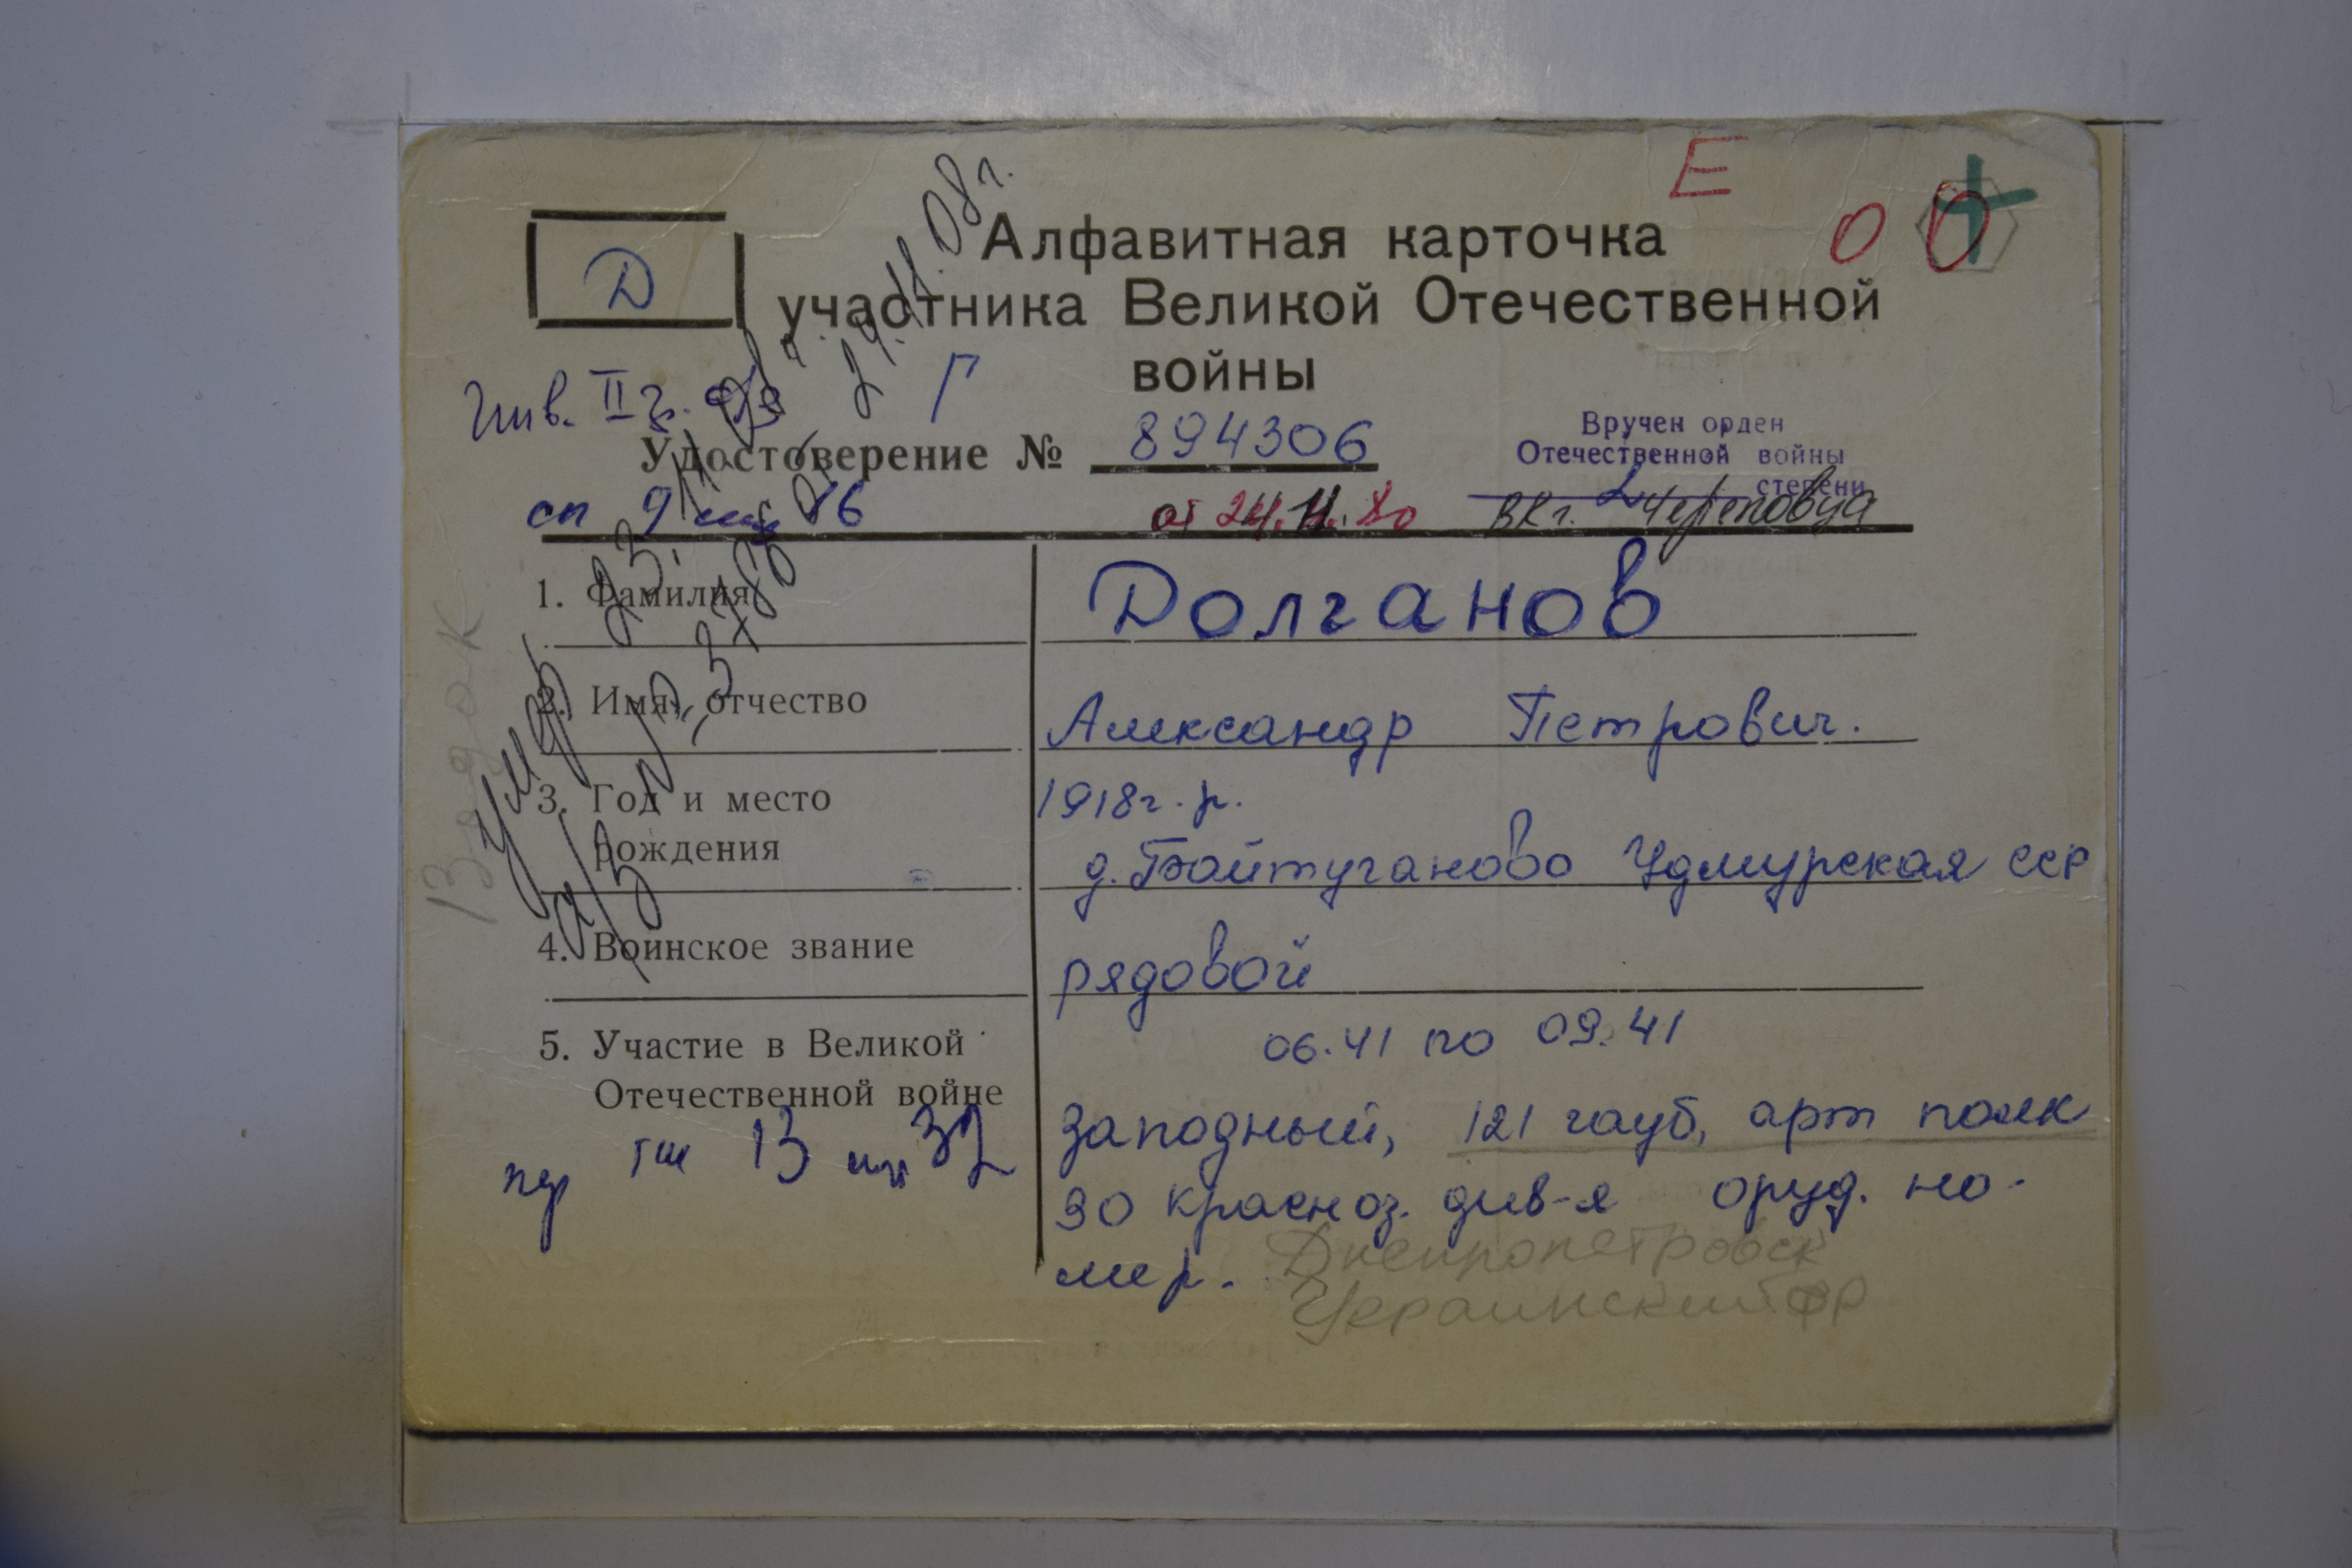 Е
О О
Д
Алфавитная карточка
участника Великой Отечественной
войны
Инв. II г.
Г
Удостоверение № 894306
от 24.11.80
Вручен орден
Отечественной войны
2 степени
ВК г. Череповца
умер 23.11.08 г. 24.11.08 г.
1. Фамилия
Долганов
2. Имя, отчество
Александр Петрович.
3. Год и место
рождения
1918 г. р.
д. Байтуганово Удмурская ССР
4. Воинское звание
рядовой
5. Участие в Великой
Отечественной войне
06.41 по 09.41
Заподный, 121 гауб, арт полк
30 красноз. див-я оруд. но-
мер.
Днепропетровск
Украинский фр
13